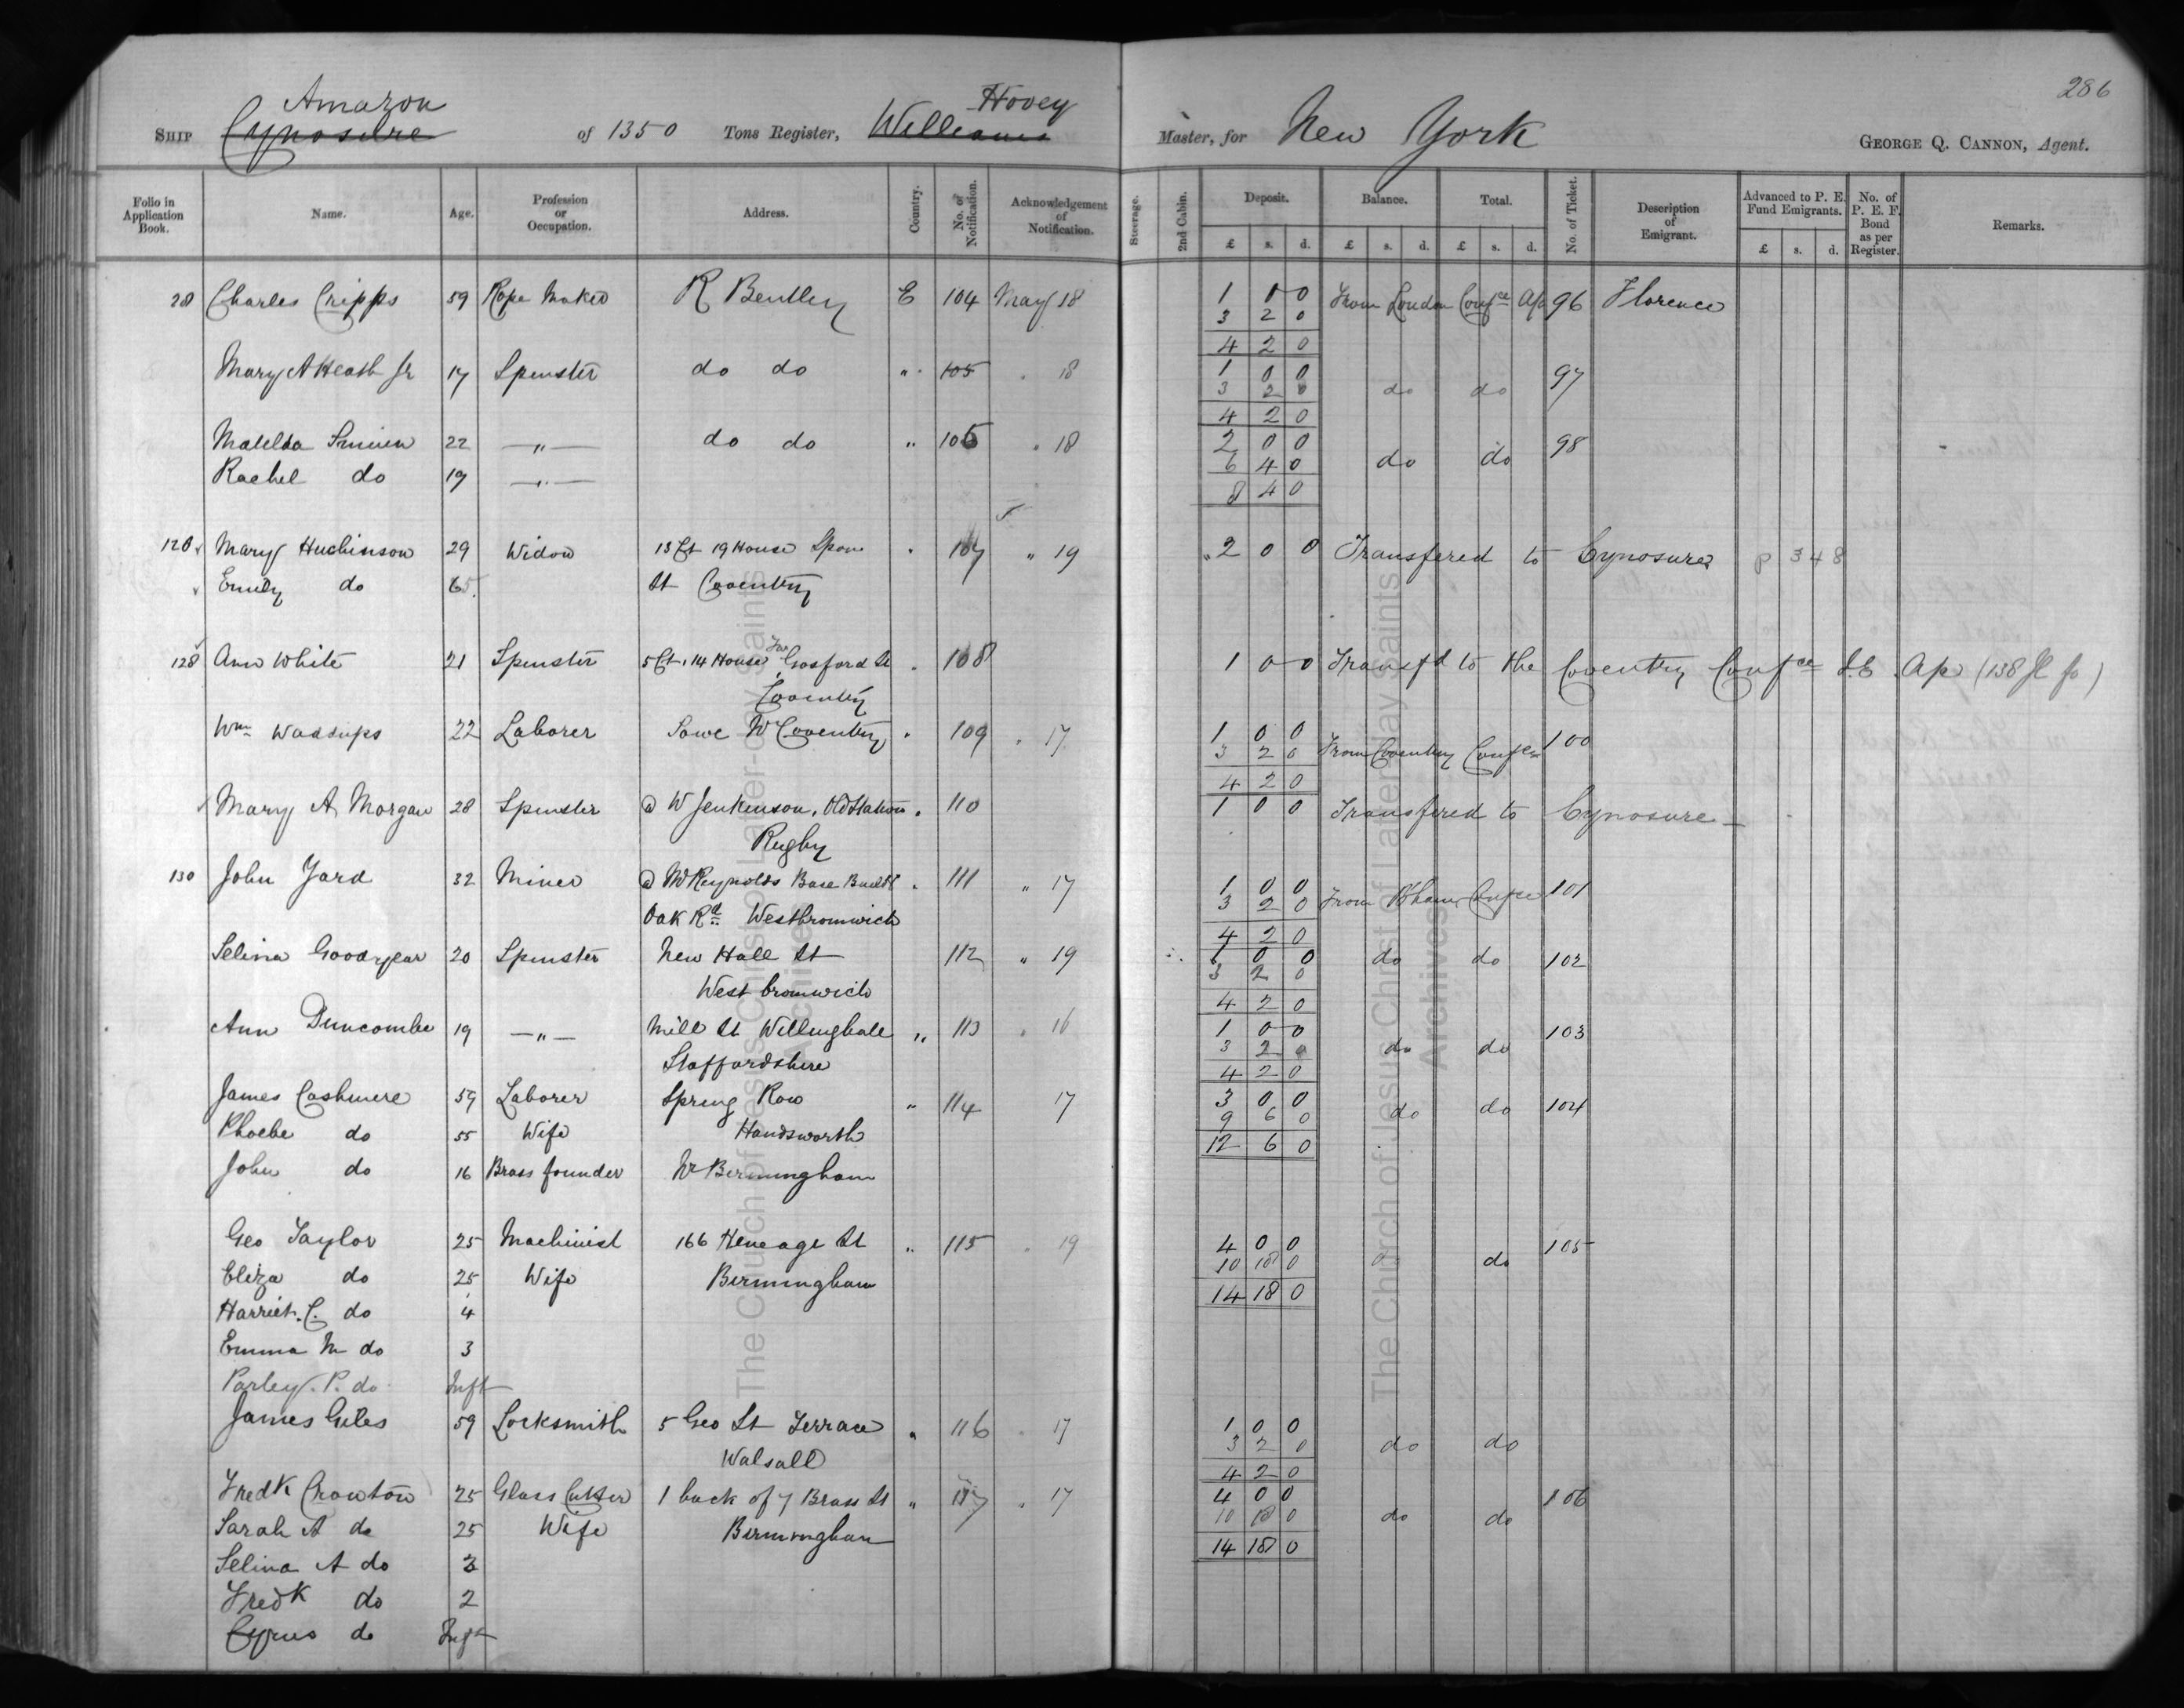 286
Amazon Hovey
SHIP Cynosure of 1350 Tons Register, Williams Master, for New York GEORGE Q. CANNON, Agent.
Folio in Application Book. Name. Age. Profession or Occupation. Address. Country. No. of Notification. Acknowledgement of Notification. Steerage. 2nd Cabin. Deposit. Balance. Total. No. of Ticket. Description of Emigrant. Advanced to P. E. Fund Emigrants. No. of P. E. F. Bond as per Register. Remarks.
£ s. d. £ s. d. £ s. d. £ s. d.
28 Charles Cripps 59 Rope Maker R Bentley E 104 May 18 1 0 0 From London Confce Ap 96 Florence
3 2 0
4 2 0
Mary A Heath Jr 17 Spinster do do " 105 " 18 1 0 0 97
3 2 0 do do
4 2 0
Matilda 22 " do do " 106 " 18 2 0 0 98
Rachel do 19 " 6 4 0 do do
8 4 0
120 Mary Huchinson 29 Widow 13 Ct 19 House Spon " 107 " 19 2 0 0 Transfered to Cynosure p 348
Emily do 6 St Coventry
128 Ann White 21 Spinster 5 Ct. 14 House Far Gosford St " 108 1 0 0 Transfd to the Coventry Confce S.E. Ap (138 fo)
Coventry
Wm Waddups 22 Laborer Sowe Nr Coventry " 109 " 17 1 0 0
3 2 0 From Coventry Confce 100
4 2 0
Mary A Morgan 28 Spinster @ W Jenkinson, Old Station " 110 1 0 0 Transfered to Cynosure
Rugby
130 John Yard 32 Miner @ W Reynolds Base Buildgs " 111 " 17 1 0 0
Oak Rd Westbromwich 3 2 0 From B'ham Confce 101
4 2 0
Selina Goodyear 20 Spinster New Hall St 112 " 19 1 0 0 do do 102
West bromwich 3 2 0
4 2 0
Ann Duncombe 19 " Mill St Willinghall " 113 " 16 1 0 0 103
Staffordshire 3 2 0 do do
4 2 0
James Cashmere 59 Laborer Spring Row " 114 17 3 0 0 do do 104
Phoebe do 55 Wife Handsworth 9 6 0
12 6 0
John do 16 Brass founder Nr Birmingham
Geo Taylor 25 Machinist 166 Heneage St " 115 " 19 4 0 0 105
Eliza do 25 Wife Birmingham 10 18 0 do do
14 18 0
Harriet. C. do 4
Emma M do 3
Parley. P. do Inft
James Giles 59 Locksmith 5 Geo St Terrace " 116 " 17 1 0 0
Walsall 3 2 0 do do
4 2 0
Fredk Crowton 25 Glass Cutter 1 back of 7 Brass St " 117 " 17 4 0 0 106
Sarah A do 25 Wife Birmingham 10 18 0 do do
14 18 0
Selina A do 3
Fredk do 2
Cyrus do Inft
The Church of Jesus Christ of Latter-day Saints
Archives
The Church of Jesus Christ of Latter-day Saints
Archives